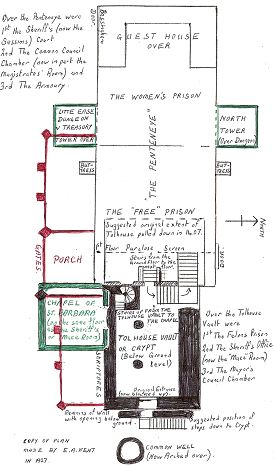 Over the Penteneye were
1st The Sheriff's (now the
Sessions) Court
2nd The Common Council
Chamber (now in part the
Magistrates' Room) and
3rd The Armoury.
Basement
Door.
GUEST HOUSE
OVER
THE WOMEN'S PRISON
LITTLE EASE
DUNGEON
IN TREASURY
TOWER OVER
NORTH
TOWER
(Over Dungeon)
"THE PENTENEYE"
BUT-
TRESS
BUT-
TRESS
THE "FREE" PRISON
Suggested original extent of
Tolhouse pulled down in
1st Floor Parclose Screen
Stairs from the
Ground floor to the
first floor.
North
GATES
PORCH
CHAPEL OF
ST. BARBARA
(on the same floor
as the Sheriff's
or Mace Room)
STAIRS OF FROM THE
TOLHOUSE VAULT TO THE CHAPEL
TOLHOUSE VAULT
OR CRYPT
(Below Ground
Level)
Original Entrance
(now blocked up).
Over the Tolhouse
Vault were
1st The Felons Prison
2nd The Sheriff's Office
(now the "Mace" Room)
3rd The Mayor's
Council Chamber
Remains of Wall
with opening below
ground.
Suggested position of
steps down to Crypt.
COPY OF PLAN
MADE BY E.A. KENT
IN
COMMON WELL
(Now Arched over).